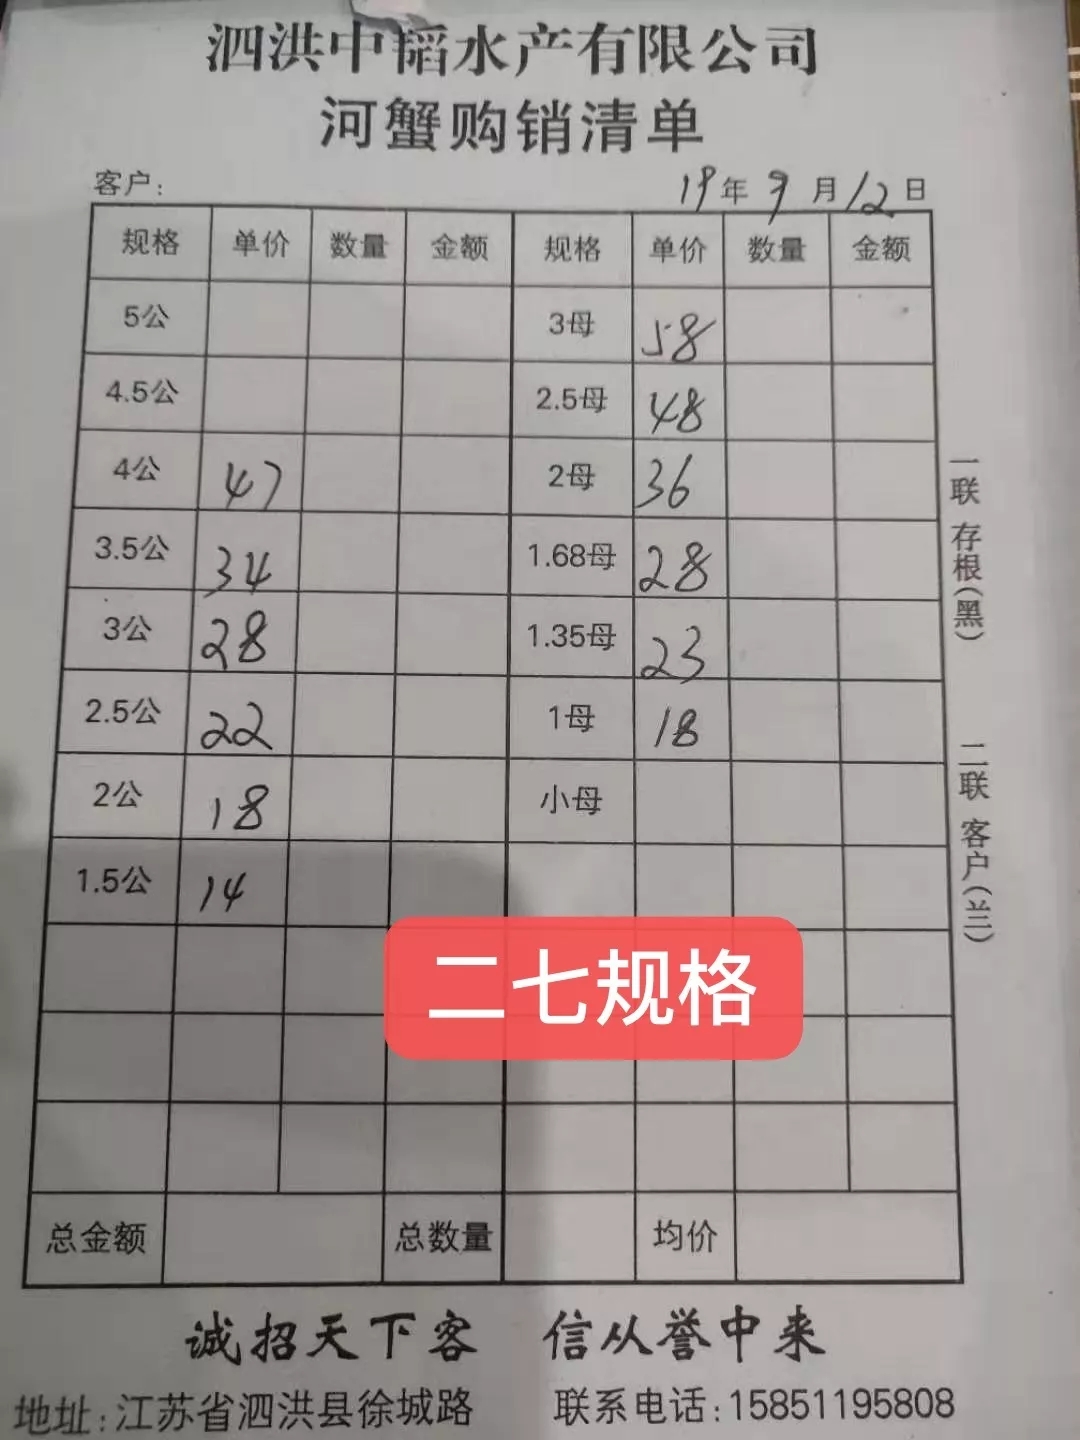 泗洪中韬水产有限公司
河蟹购销清单
客户: 19年9月12日
规格 单价 数量 金额 规格 单价 数量 金额
5公 3母 58
4.5公 2.5母 48
4公 47 2母 36
3.5公 34 1.68母 28
3公 28 1.35母 23
2.5公 22 1母 18
2公 18 小母
1.5公 14
二七规格
总金额 总数量 均价
一联 存根(黑)
二联 客户(兰)
诚招天下客 信从誉中来
地址:江苏省泗洪县徐城路 联系电话:15851195808